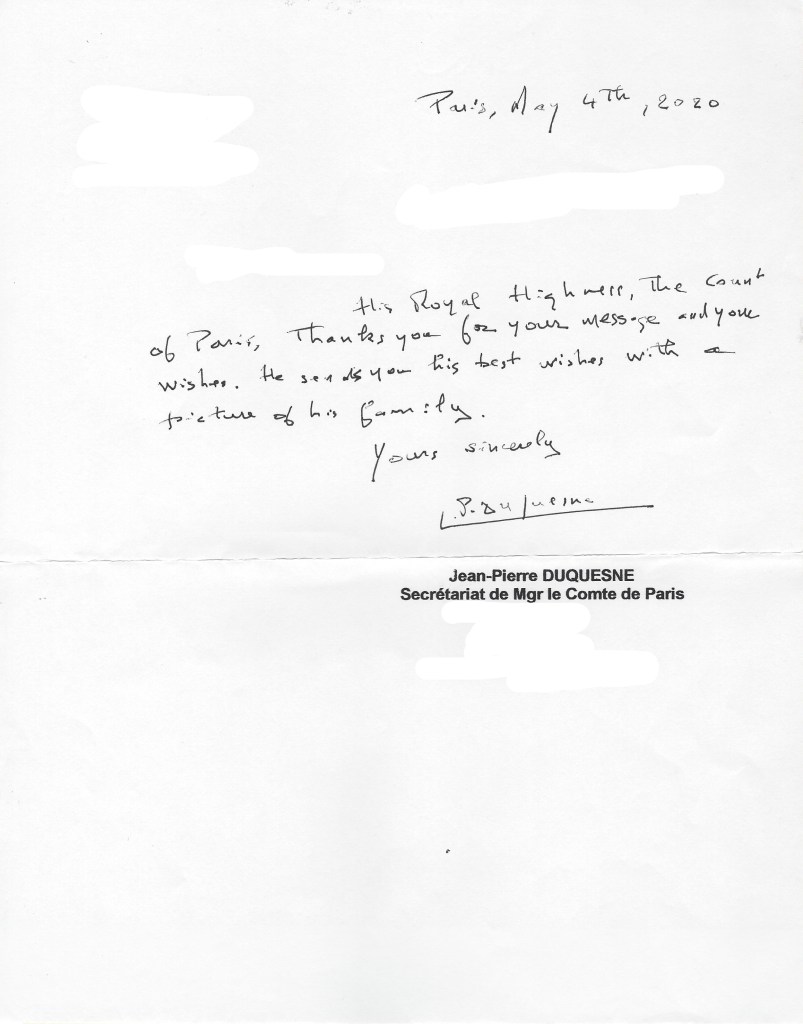 Paris, May 4Th, 2020
His Royal Highness, The Count
of Paris, Thanks you for your message and your
wishes. He sends you his best wishes with a
picture of his family.
Yours sincerely
J.P. Duquesne
Jean-Pierre DUQUESNE
Secrétariat de Mgr le Comte de Paris